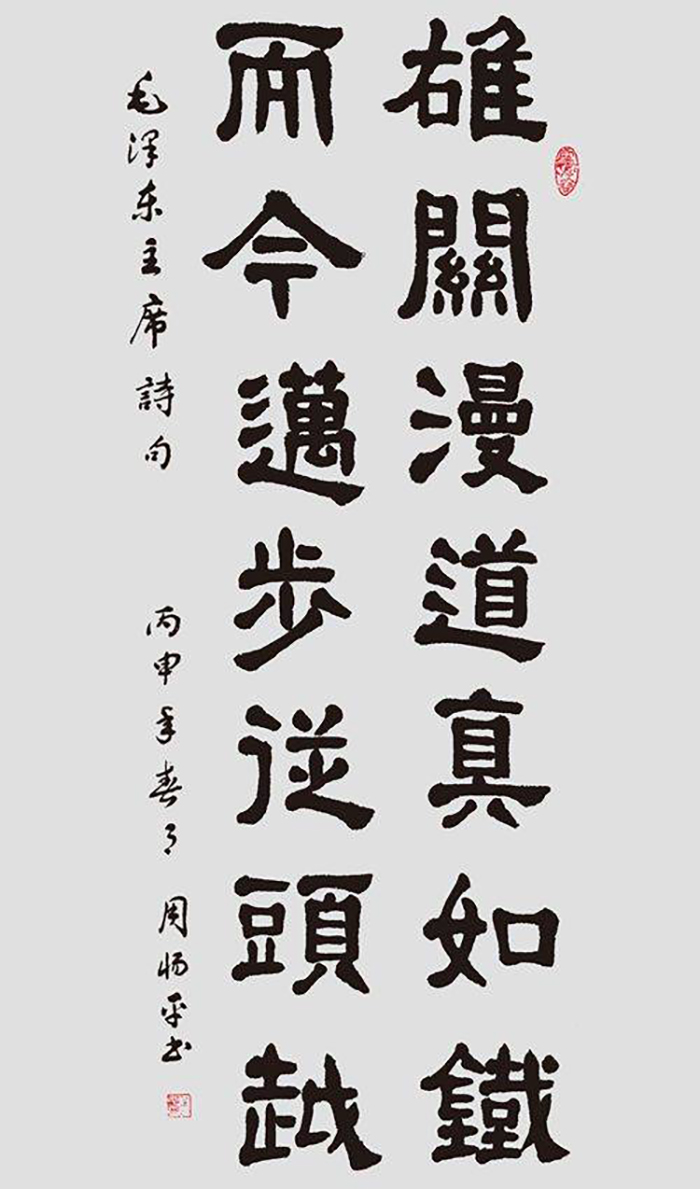 雄關漫道真如鐵
而今邁步從頭越
毛泽东主席詩句
丙申年春月 周 平书